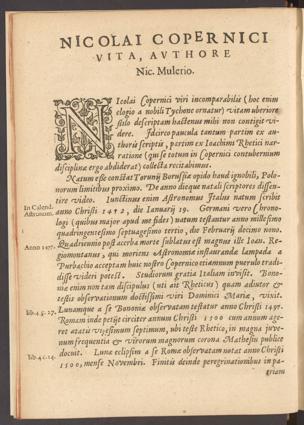 NICOLAI COPERNICI
VITA, AVTHORE
Nic. Mulerio.
NIcolai Copernici viri incomparabilis (hoc enim
elogio a nobili Tychone ornatur) vitam uberiore
stilo descriptam hactenus mihi non contigit vi-
dere. Idcirco paucula tantum partim ex au-
thoris scriptis, partim ex Ioachimi Rhetici nar-
ratione (qui se totum in Copernici contubernium
disciplinæ ergo abdiderat) collecta recitabimus.
Natum esse constat Torunij Borussiæ opido haud ignobili, Polo-
norum limitibus proximo. De anno dieque natali scriptores dissen-
tire video. Iunctinus enim Astronomus Italus natum scribit
In Calend.
Astronom.
anno Christi 1472, die Ianuarij 19. Germani vero Chrono-
logi (quibus major apud me fides) natum testantur anno millesimo
quadringentesimo septuagesimo tertio, die Februarij decimo nono.
Quadriennio post acerba morte sublatus est magnus ille Ioan. Re-
Anno 1497.
giomontanus, qui moriens Astronomiæ instaurandæ lampada a
Purbachio acceptam huic nostro Copernico etiamnum puerulo tradi-
disse videri potest. Studiorum gratia Italiam invisit. Bono-
niæ enim non tam discipulus (uti ait Rheticus) quam adiutor &
testis observationum doctissimi viri Dominici Mariæ, vixit.
Lunamque a se Bononiæ observatam testatur anno Christi 1497.
lib. 4. c. 27.
Romam inde petijt circiter annum Christi 1500 cum annum age-
ret ætatis vigesimum septimum, ubi teste Rhetico, in magna juve-
num frequentia & virorum magnorum corona Mathesin publice
docuit. Luna eclipsim a se Romæ observatam notat anno Christi
lib. 4. c. 14.
1500, mense Novembri. Finitis deinde peregrinationibus in pa-
triam